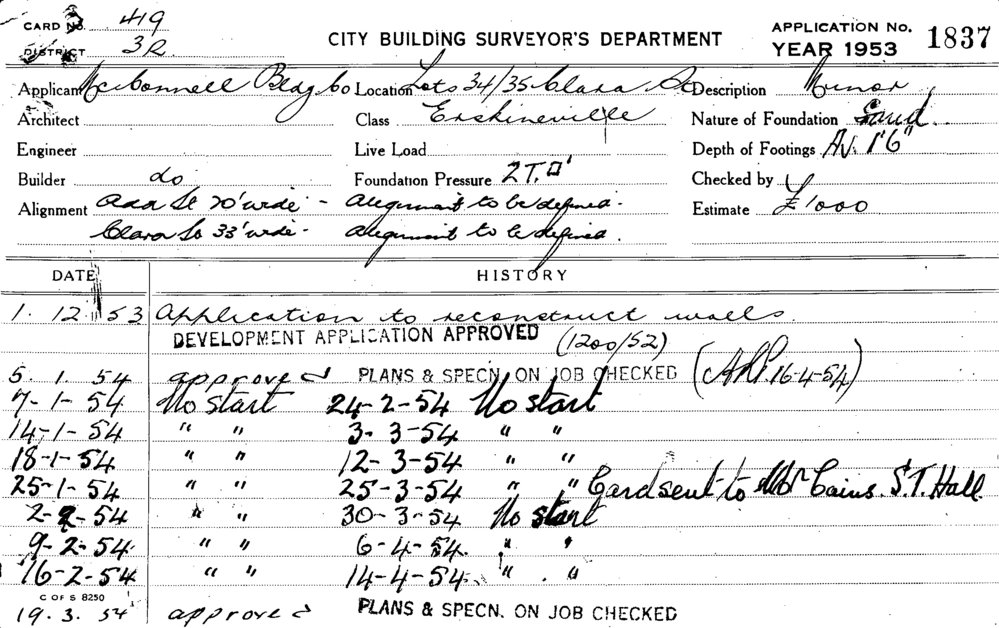 CARD No. 419
DISTRICT 3R
CITY BUILDING SURVEYOR'S DEPARTMENT
APPLICATION No. 1837
YEAR 1953
Applicant McConnell Bldg Co Location Lots 34/35 Clara St Description Minor
Architect Class Erskineville Nature of Foundation Sand
Engineer Live Load Depth of Footings Av. 1'6"
Builder do Foundation Pressure 2T.□' Checked by
Alignment Ada St 20' wide - alignment to be defined. Estimate £1000
Clara St 33' wide - alignment to be defined.
DATE HISTORY
1. 12. 53 Application to reconstruct walls.
DEVELOPMENT APPLICATION APPROVED (1200/52)
5. 1. 54 approved PLANS & SPECN. ON JOB CHECKED 16-4-54)
7-1-54 No start 24-2-54 No start
14-1-54 " " 3-3-54 " "
18-1-54 " " 12-3-54 " "
25-1-54 " " 25-3-54 " " Card sent to Mr Cains. S.T. Hall
2-2-54 " " 30-3-54 No start
9-2-54 " " 6-4-54. " "
16-2-54 " " 14-4-54. " "
C OF S 8250
19. 3. 54 approved PLANS & SPECN. ON JOB CHECKED